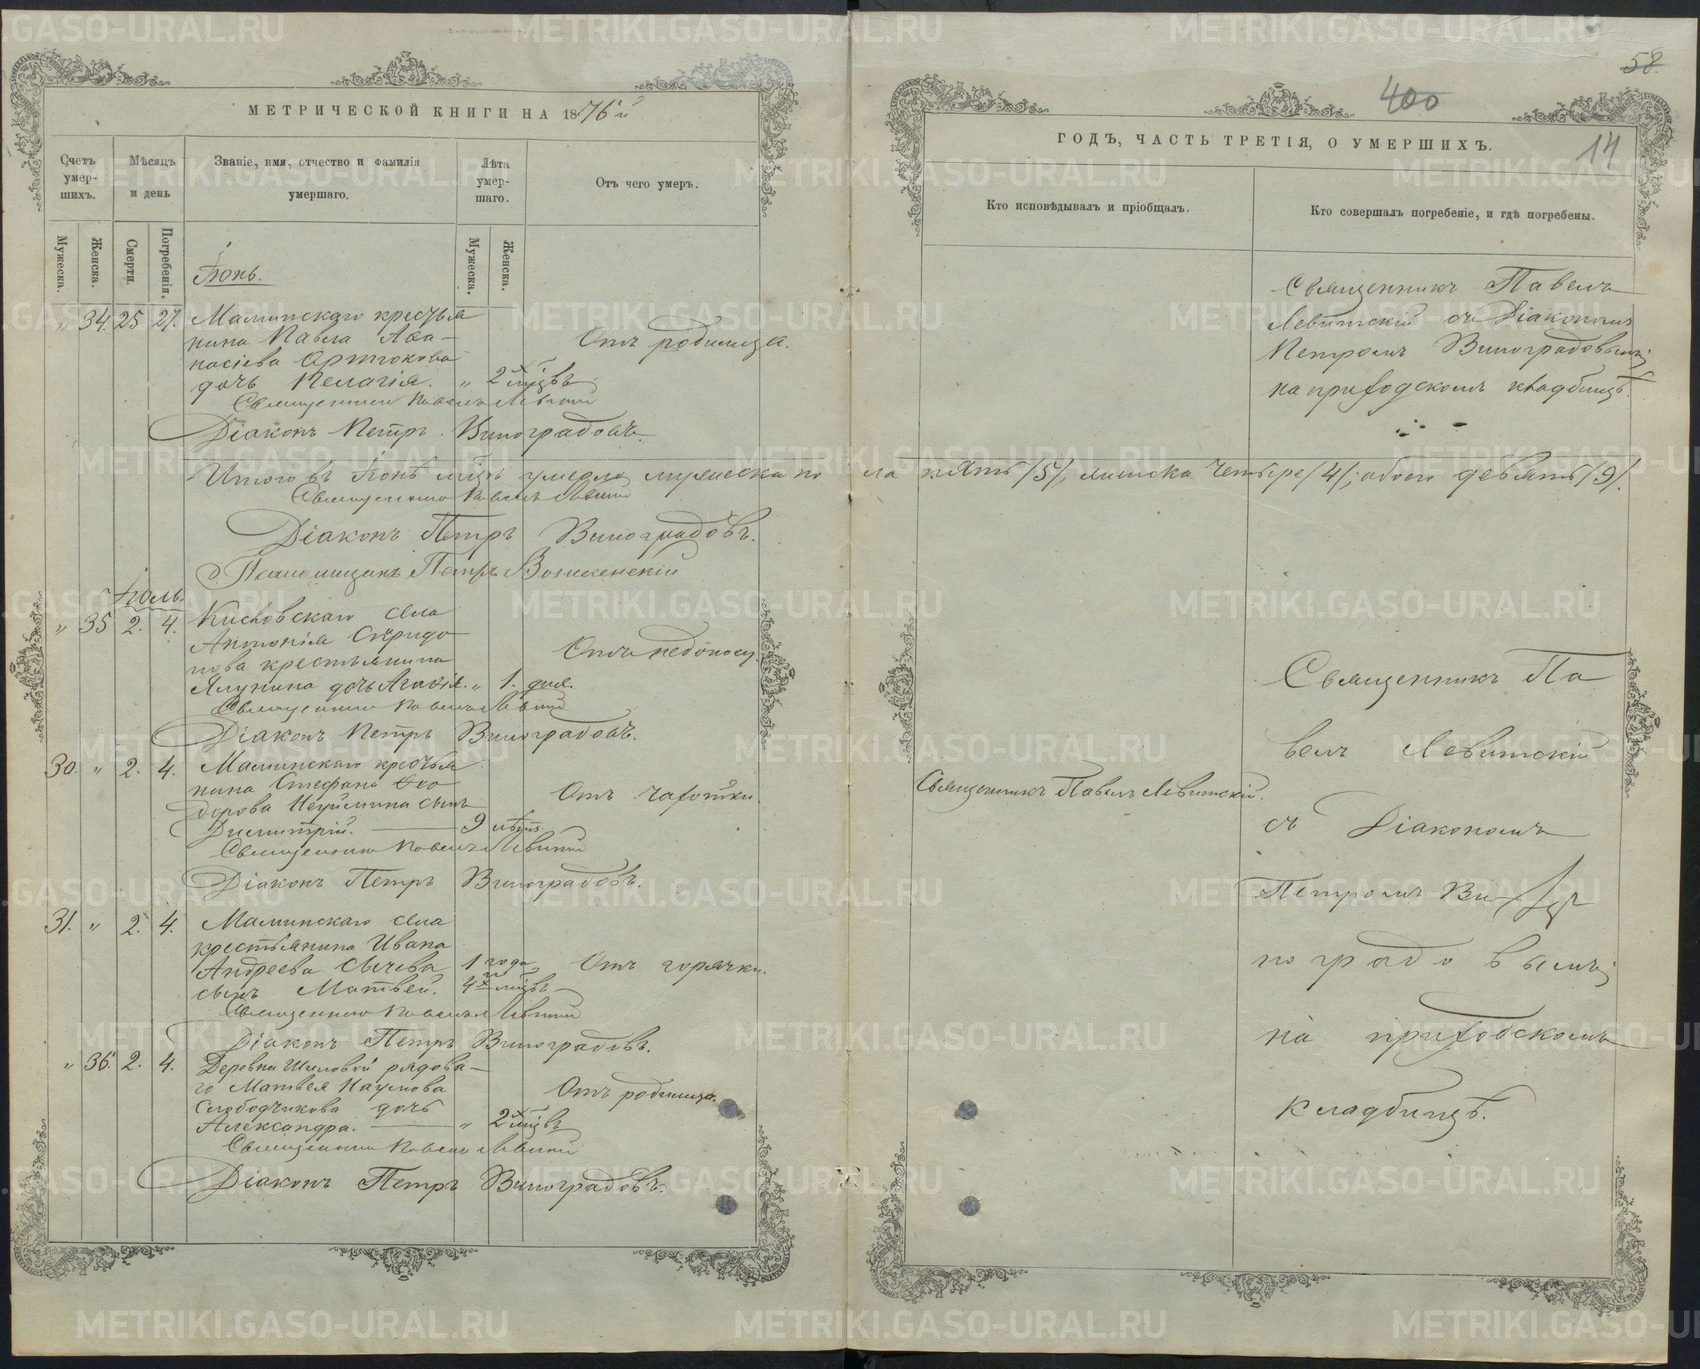 МЕТРИЧЕСКОЙ КНИГИ НА 1876й
Счетъ умер-шихъ.
Мѣсяцъ и день
Званіе, имя, отчество и фамилія умершаго.
Лѣта умер-шаго.
Отъ чего умеръ.
Мужеска.
Женска.
Смерти.
Погребенія.
Мужеска.
Женска.
Іюнь.
" 34. 25 27. Маминскаго крестья
нина Павла Аѳа-
насіева Артюхова
дочь Пелагія. " 2х мцвъ
Отъ родимца.
Священникъ Павелъ Левитскій
Діаконъ Петръ Виноградовъ.
Итого въ Іюнѣ мцѣ умерло мужеска по
Священникъ Павелъ Левитскій
Діаконъ Петръ Виноградовъ.
Петръ Вознесенскій
Іюль.
" 35 2. 4. села
Антонія Спиридо
нова крестьянина
Ялунина дочь Агафія. " 1. дня.
Отъ недоносу.
Священникъ Павелъ Левитскій
Діаконъ Петръ Виноградовъ.
30. " 2. 4. Маминскаго крестья
нина Стефана Ѳео
дорова сынъ
Димитрій. 9 лѣтъ
Отъ чахотки.
Священникъ Павелъ Левитскій
Діаконъ Петръ Виноградовъ.
31. " 2. 4. Маминскаго села
крестьянина Ивана
Андреева Сычева 1 года
сынъ Матвей. 4х мцвъ
Отъ горячки.
Священникъ Павелъ Левитскій
Діаконъ Петръ Виноградовъ.
" 36. 2. 4. Деревни Шиловой рядова-
го Матвея Наумова
Слободчикова дочь
Александра. " 2х мцвъ
Отъ родимца.
Священникъ Павелъ Левитскій
Діаконъ Петръ Виноградовъ.
58.
400
14
ГОДЪ, ЧАСТЬ ТРЕТІЯ, О УМЕРШИХЪ.
Кто исповѣдывалъ и пріобщалъ.
Кто совершалъ погребеніе, и гдѣ погребены.
Священникъ Павелъ
Левитскій съ Діакономъ
Петромъ Виноградовымъ;
на приходскомъ кладбищѣ.
ла пять /5/, женска четыре /4/; обоего девять /9/.
Священникъ Па
велъ Левитскій
Священникъ Павелъ Левитскій.
съ Діакономъ
Петромъ Ви-
ноградовымъ;
на приходскомъ
кладбищѣ.
METRIKI.GASO-URAL.RU